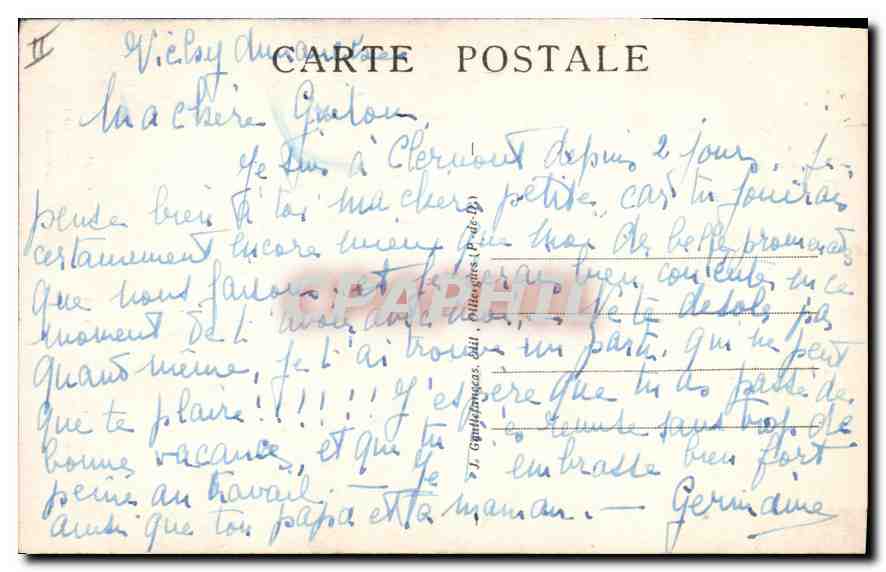 II
Vichy dimanche
CARTE POSTALE
Ma chère Guitou,
Je suis à Clermont depuis 2 jours. Je
pense bien à toi ma chère petite car tu jouirais
certainement encore mieux que moi de belles promenades
que nous faisons, et je serais bien contente en ce
moment de t'avoir avec moi, Ne te désole pas
quand même, je t'ai trouvé un parti, qui ne peut
que te plaire!!!!!! J'espère que tu as passé de
bonnes vacances, et que tu t'es remise sans trop de
peine au travail. — Je embrasse bien fort
ainsi que ton papa et ta maman. — Germaine
J. Gentilfrançcas, édit., Villosges (P.-de-D.)
CPAPHIL